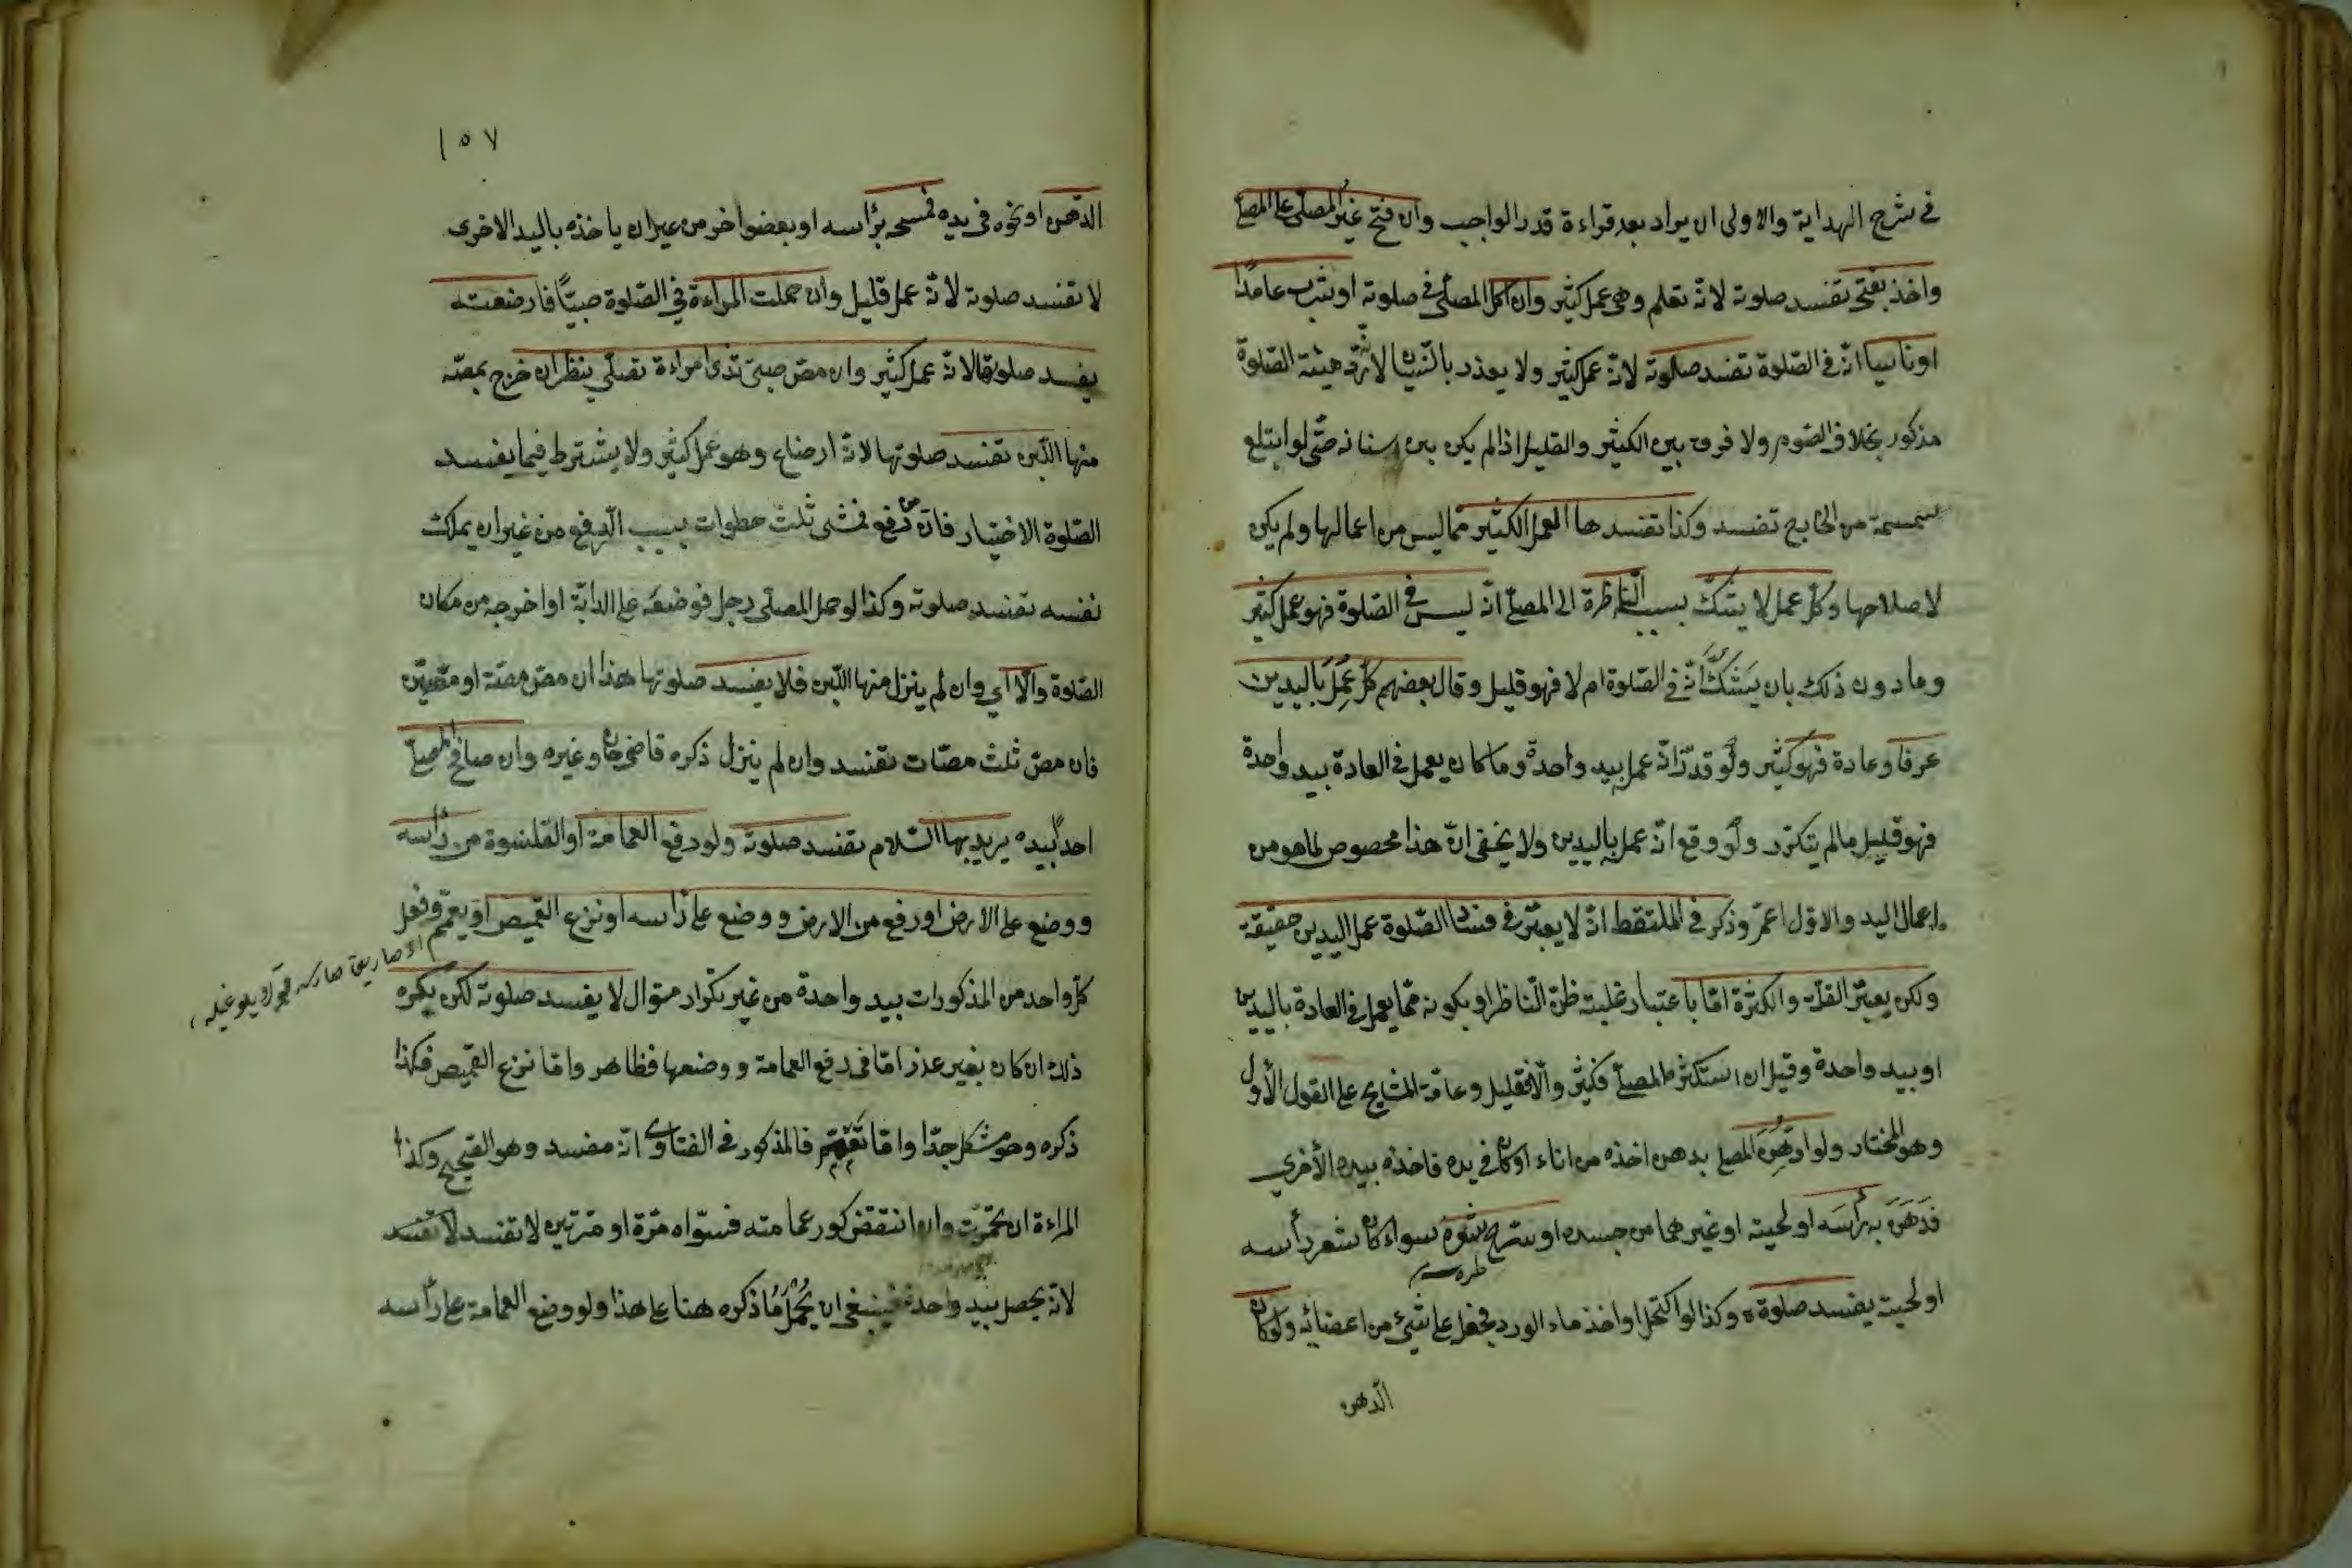 في شرح الهداية والاولى ان يراد بعد قراءة قدر الواجب وان فتح غير المصلي على المصلي
واخذ بفتحه تفسد صلوته لانه تعلم وهي عمل كثير وان اكل المصلي في صلوته او شرب عامدًا
او ناسيا انه في الصلوة تفسد صلوته لانه عمل كثير ولا يعذر بالنسيان لانه هيئة الصلوة
مذكور بخلاف الصوم ولا فرق بين الكثير والقليل اذا لم يكن بين اسنانه حتى لو ابتلع
سمسمة من الخارج تفسد وكذا تفسدها العمل الكثير مما ليس من اعمالها ولم يكن
لاصلاحها وكل عمل لا يشك بسببه الناظرة الى المصلي انه ليس في الصلوة فهو عمل كثير
وما دون ذلك بان يشك انه في الصلوة ام لا فهو قليل وقال بعضهم كل عمل باليدين
عرفا وعادة فهو كثير ولو قدر انه عمل بيد واحدة وما كان يعمل في العادة بيد واحدة
فهو قليل مالم يتكرر ولو وقع انه عمل باليدين ولا يخفى ان هذا مخصوص لما هو من
اعمال اليد والاول اعم وذكر في الملتقط انه لا يعتبر في فساد الصلوة عمل اليدين حقيقة
ولكن يعتبر القلة والكثرة اما باعتبار غلبة ظن الناظر او بكونه مما يعمل في العادة باليدين
او بيد واحدة وقيل ان استكثره المصلي فكثير والا فقليل وعامة المشايخ على القول الأول
وهو المختار ولو ادهن المصلي بدهن اخذه من اناء او كان في يده فاخذه بيده الأخرى
فدهن به رأسه او لحيته او غيرهما من جسده او سرح شعره سواء كان شعر رأسه
او لحيته يفسد صلوته وكذا لو اكتحل او اخذ ماء الورد فجعل على شيء من اعضائه ولو كان
الدهن
١٥٧
الدهن او نحوه في يده فمسحه برأسه او بعضو اخر من غير ان ياخذه باليد الاخرى
لا تفسد صلوته لانه عمل قليل وان حملت المراءة في الصلوة صبيًا فارضعته
يفسد صلوتها لانه عمل كثير وان مص صبي ثدى امراءة تصلي ينظر ان خرج بمصه
منها اللبن تفسد صلوتها لانه ارضاع وهو عمل كثير ولا يشترط فيما يفسد
الصلوة الاختيار فان من دفع فمشى ثلث خطوات بسبب الدفع من غير ان يملك
نفسه تفسد صلوته وكذا لو حمل المصلي رجل فوضعه على الدابة او اخرجه من مكان
الصلوة والا اي وان لم ينزل منها اللبن فلا يفسد صلوتها هذا ان مص مصة او مصتين
فان مص ثلث مصات تفسد وان لم ينزل ذكره قاضى خان وغيره وان صافح المصلي
احد بيده يريد بها السلام تفسد صلوته ولو رفع العمامة او القلنسوة من رأسه
ووضع على الارض او رفع من الارض ووضع على رأسه او نزع القميص او تعمم وفعل
كل واحد من المذكورات بيد واحدة من غير تكرار متوال لا يفسد صلوته لكن يكره
ذلك ان كان بغير عذر اما في رفع العمامة ووضعها فظاهر واما نزع القميص فكذا
ذكره وهو مشكل جدًا واما تعمم فالمذكور في الفتاوى انه مفسد وهو الصحيح وكذا
المراءة ان تخمرت وان انتقض كور عمامته فسواه مرة او مرتين لا تفسد لا تفسد
لانه يحصل بيد واحدة فينبغي ان يحمل ما ذكره هنا على هذا ولو وضع العمامة على رأسه